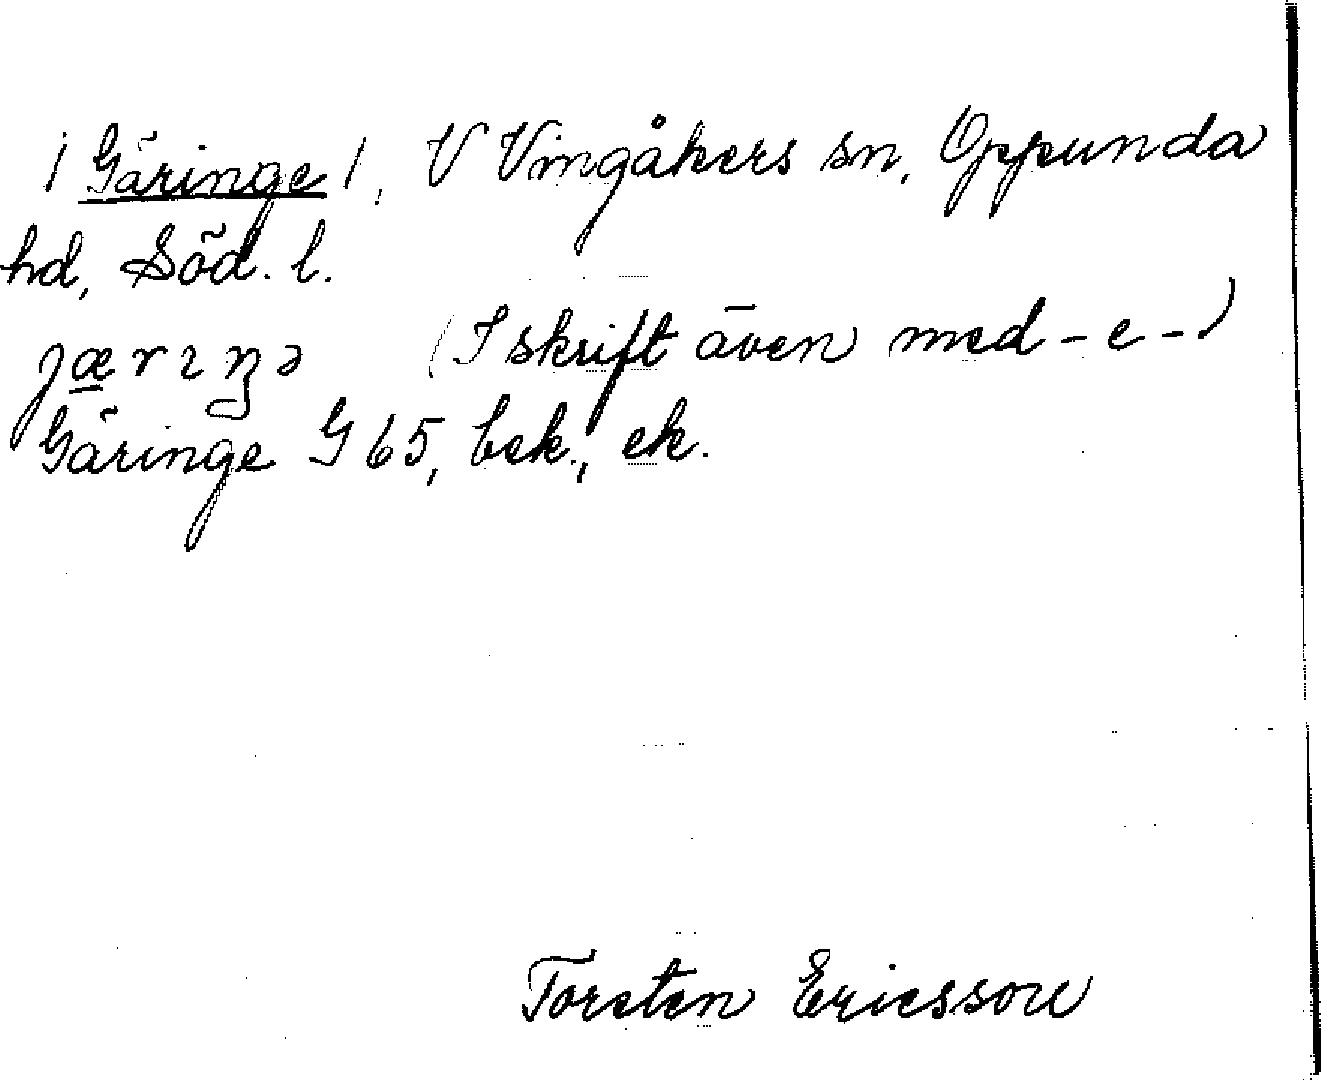 / Gäringe /, V Vingåkers sn, Oppunda
hd, Söd. l.
jæ̲rıŋə (I skrift även med -e-)
Gäringe G 65, bek., ek.
Torsten Ericsson